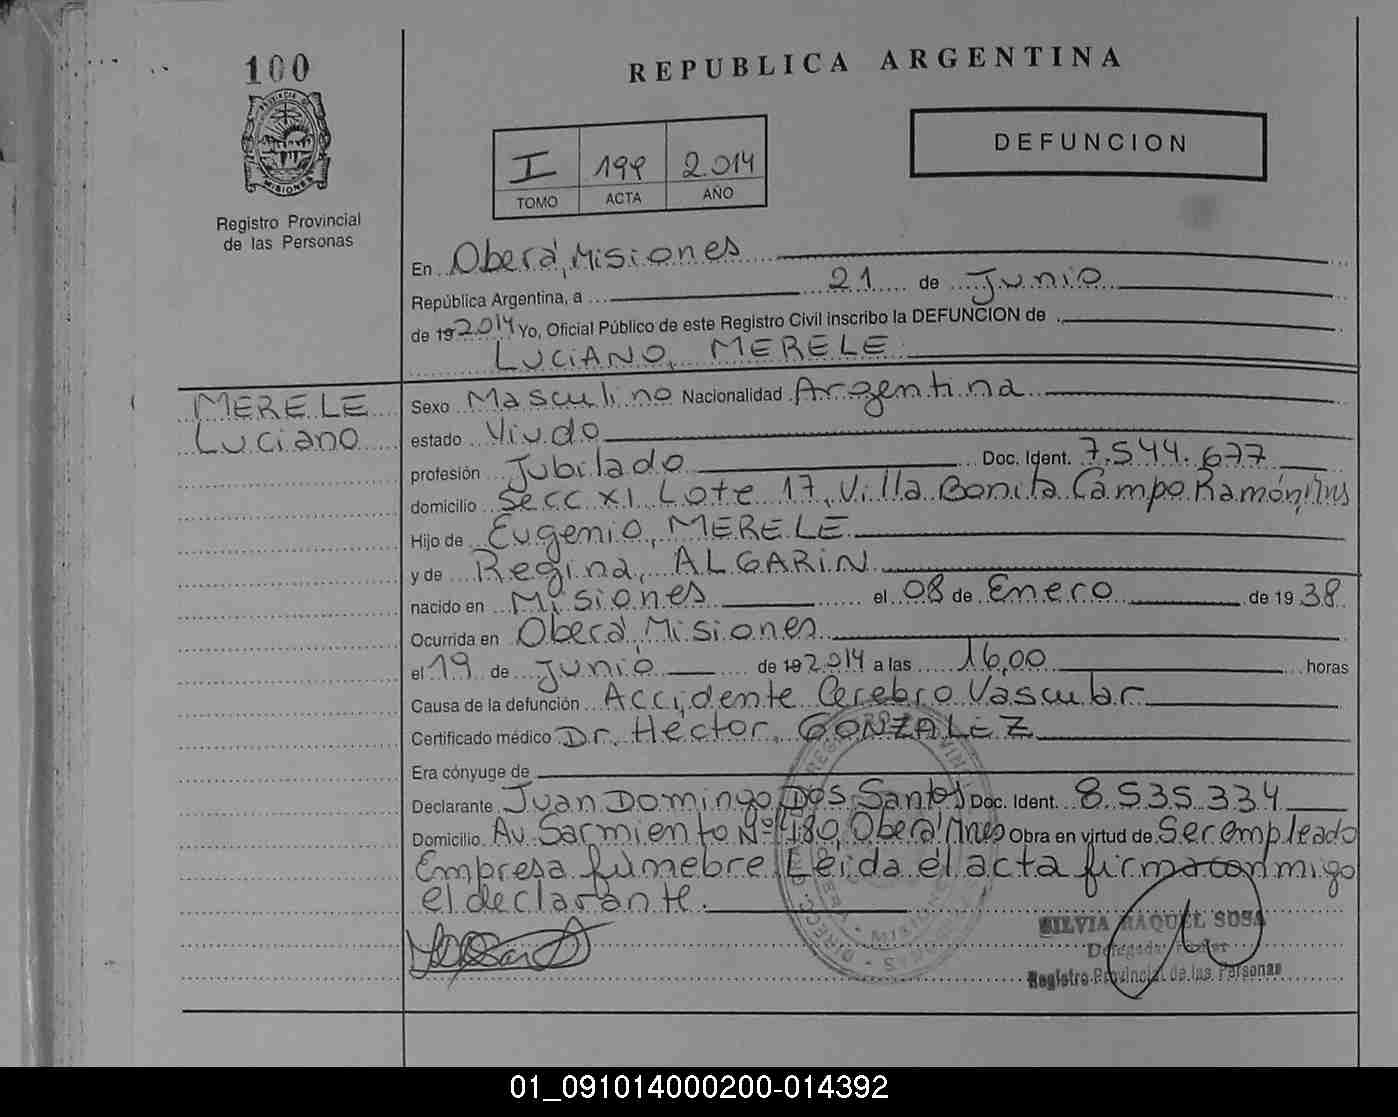 100
REPUBLICA ARGENTINA
DEFUNCION
I 199 2.014
TOMO ACTA AÑO
PROVINCIA DE MISIONES
Registro Provincial
de las Personas
En Oberá, Misiones
República Argentina, a 21 de Junio
de 19 2.014 Yo, Oficial Público de este Registro Civil inscribo la DEFUNCION de
LUCIANO, MERELE
MERELE
Luciano
Sexo Masculino Nacionalidad Argentina
estado Viudo
profesión Jubilado Doc. Ident. 7.544.677
domicilio Secc XI, Lote 17, Villa Bonita Campo Ramón, Mns
Hijo de Eugenio, MERELE
y de Regina, ALGARIN
nacido en Misiones el 08 de Enero de 19 38
Ocurrida en Oberá, Misiones
el 19 de Junio de 19 2.014 a las 16,00 horas
Causa de la defunción Accidente Cerebro Vascular
Certificado médico Dr. Héctor, GONZALEZ
Era cónyuge de
Declarante Juan Domingo Dos Santos Doc. Ident. 8.535.334
Domicilio Av. Sarmiento Nº 480, Oberá Mnes Obra en virtud de Ser empleado
Empresa fúnebre Leída el acta firma conmigo
el declarante.
SILVIA RAQUEL SOSA
Delegada
Registro Provincial de las Personas
01_091014000200-014392